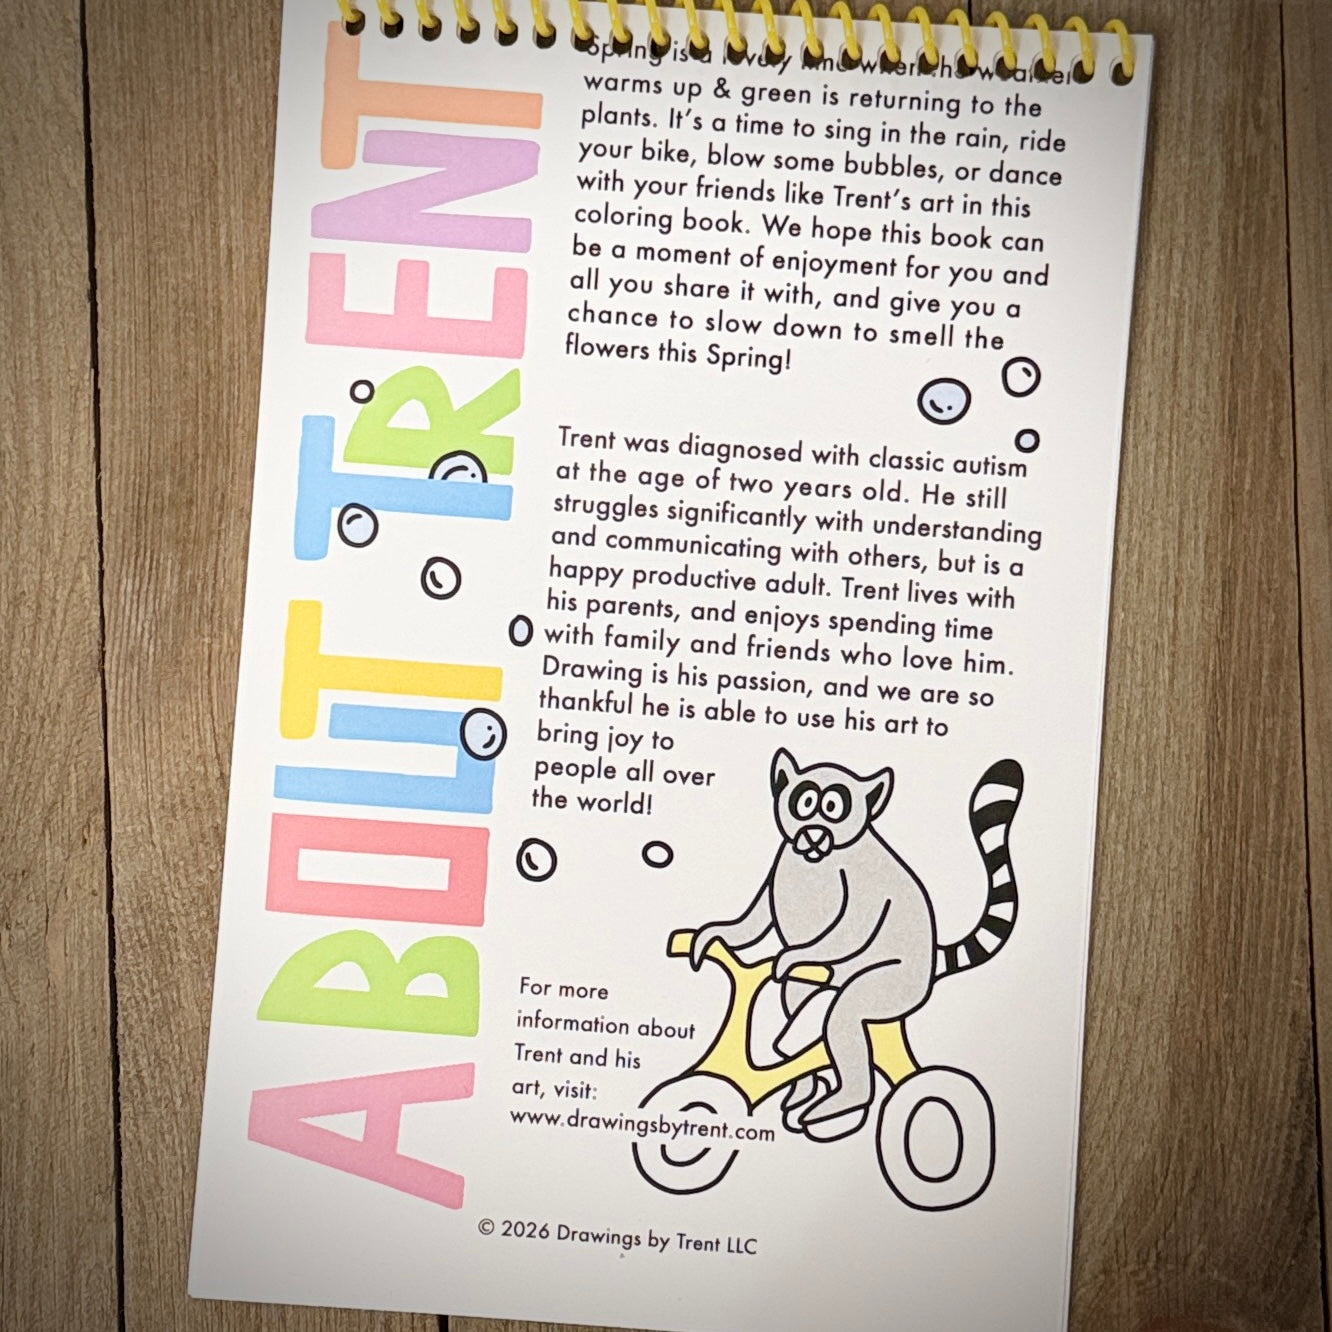 ABOUT TRENT
Spring is a lovely time when the weather
warms up & green is returning to the
plants. It's a time to sing in the rain, ride
your bike, blow some bubbles, or dance
with your friends like Trent's art in this
coloring book. We hope this book can
be a moment of enjoyment for you and
all you share it with, and give you a
chance to slow down to smell the
flowers this Spring!
Trent was diagnosed with classic autism
at the age of two years old. He still
struggles significantly with understanding
and communicating with others, but is a
happy productive adult. Trent lives with
his parents, and enjoys spending time
with family and friends who love him.
Drawing is his passion, and we are so
thankful he is able to use his art to
bring joy to
people all over
the world!
For more
information about
Trent and his
art, visit:
www.drawingsbytrent.com
© 2026 Drawings by Trent LLC